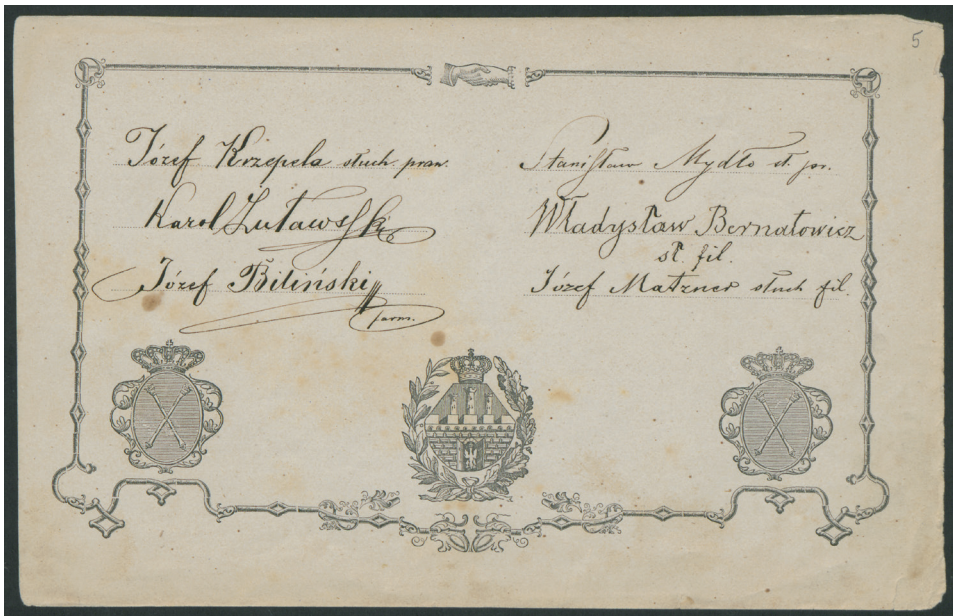 5
Józef Krzepela słuch. praw.
Karol Zuławski
Józef Biliński
farm.
Stanisław Mydło sł. pr.
Władysław Bernatowicz
sł. fil.
Józef Matzner słuch fil.